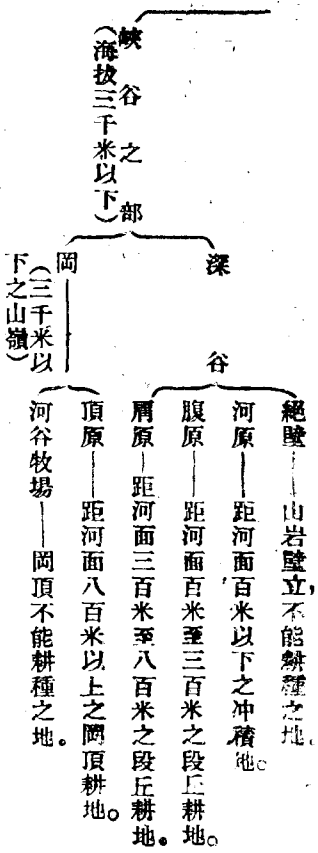 峽谷之部
(海拔三千米以下)
深谷
絕壁——山岩壁立,不能耕種之地。
河原——距河面百米以下之冲積地。
腹原——距河面百米至三百米之段丘耕地。
肩原—距河面三百米至八百米之段丘耕地。
岡
(三千米以
下之山嶺)
頂原——距河面八百米以上之岡頂耕地。
河谷牧場——岡頂不能耕種之地。